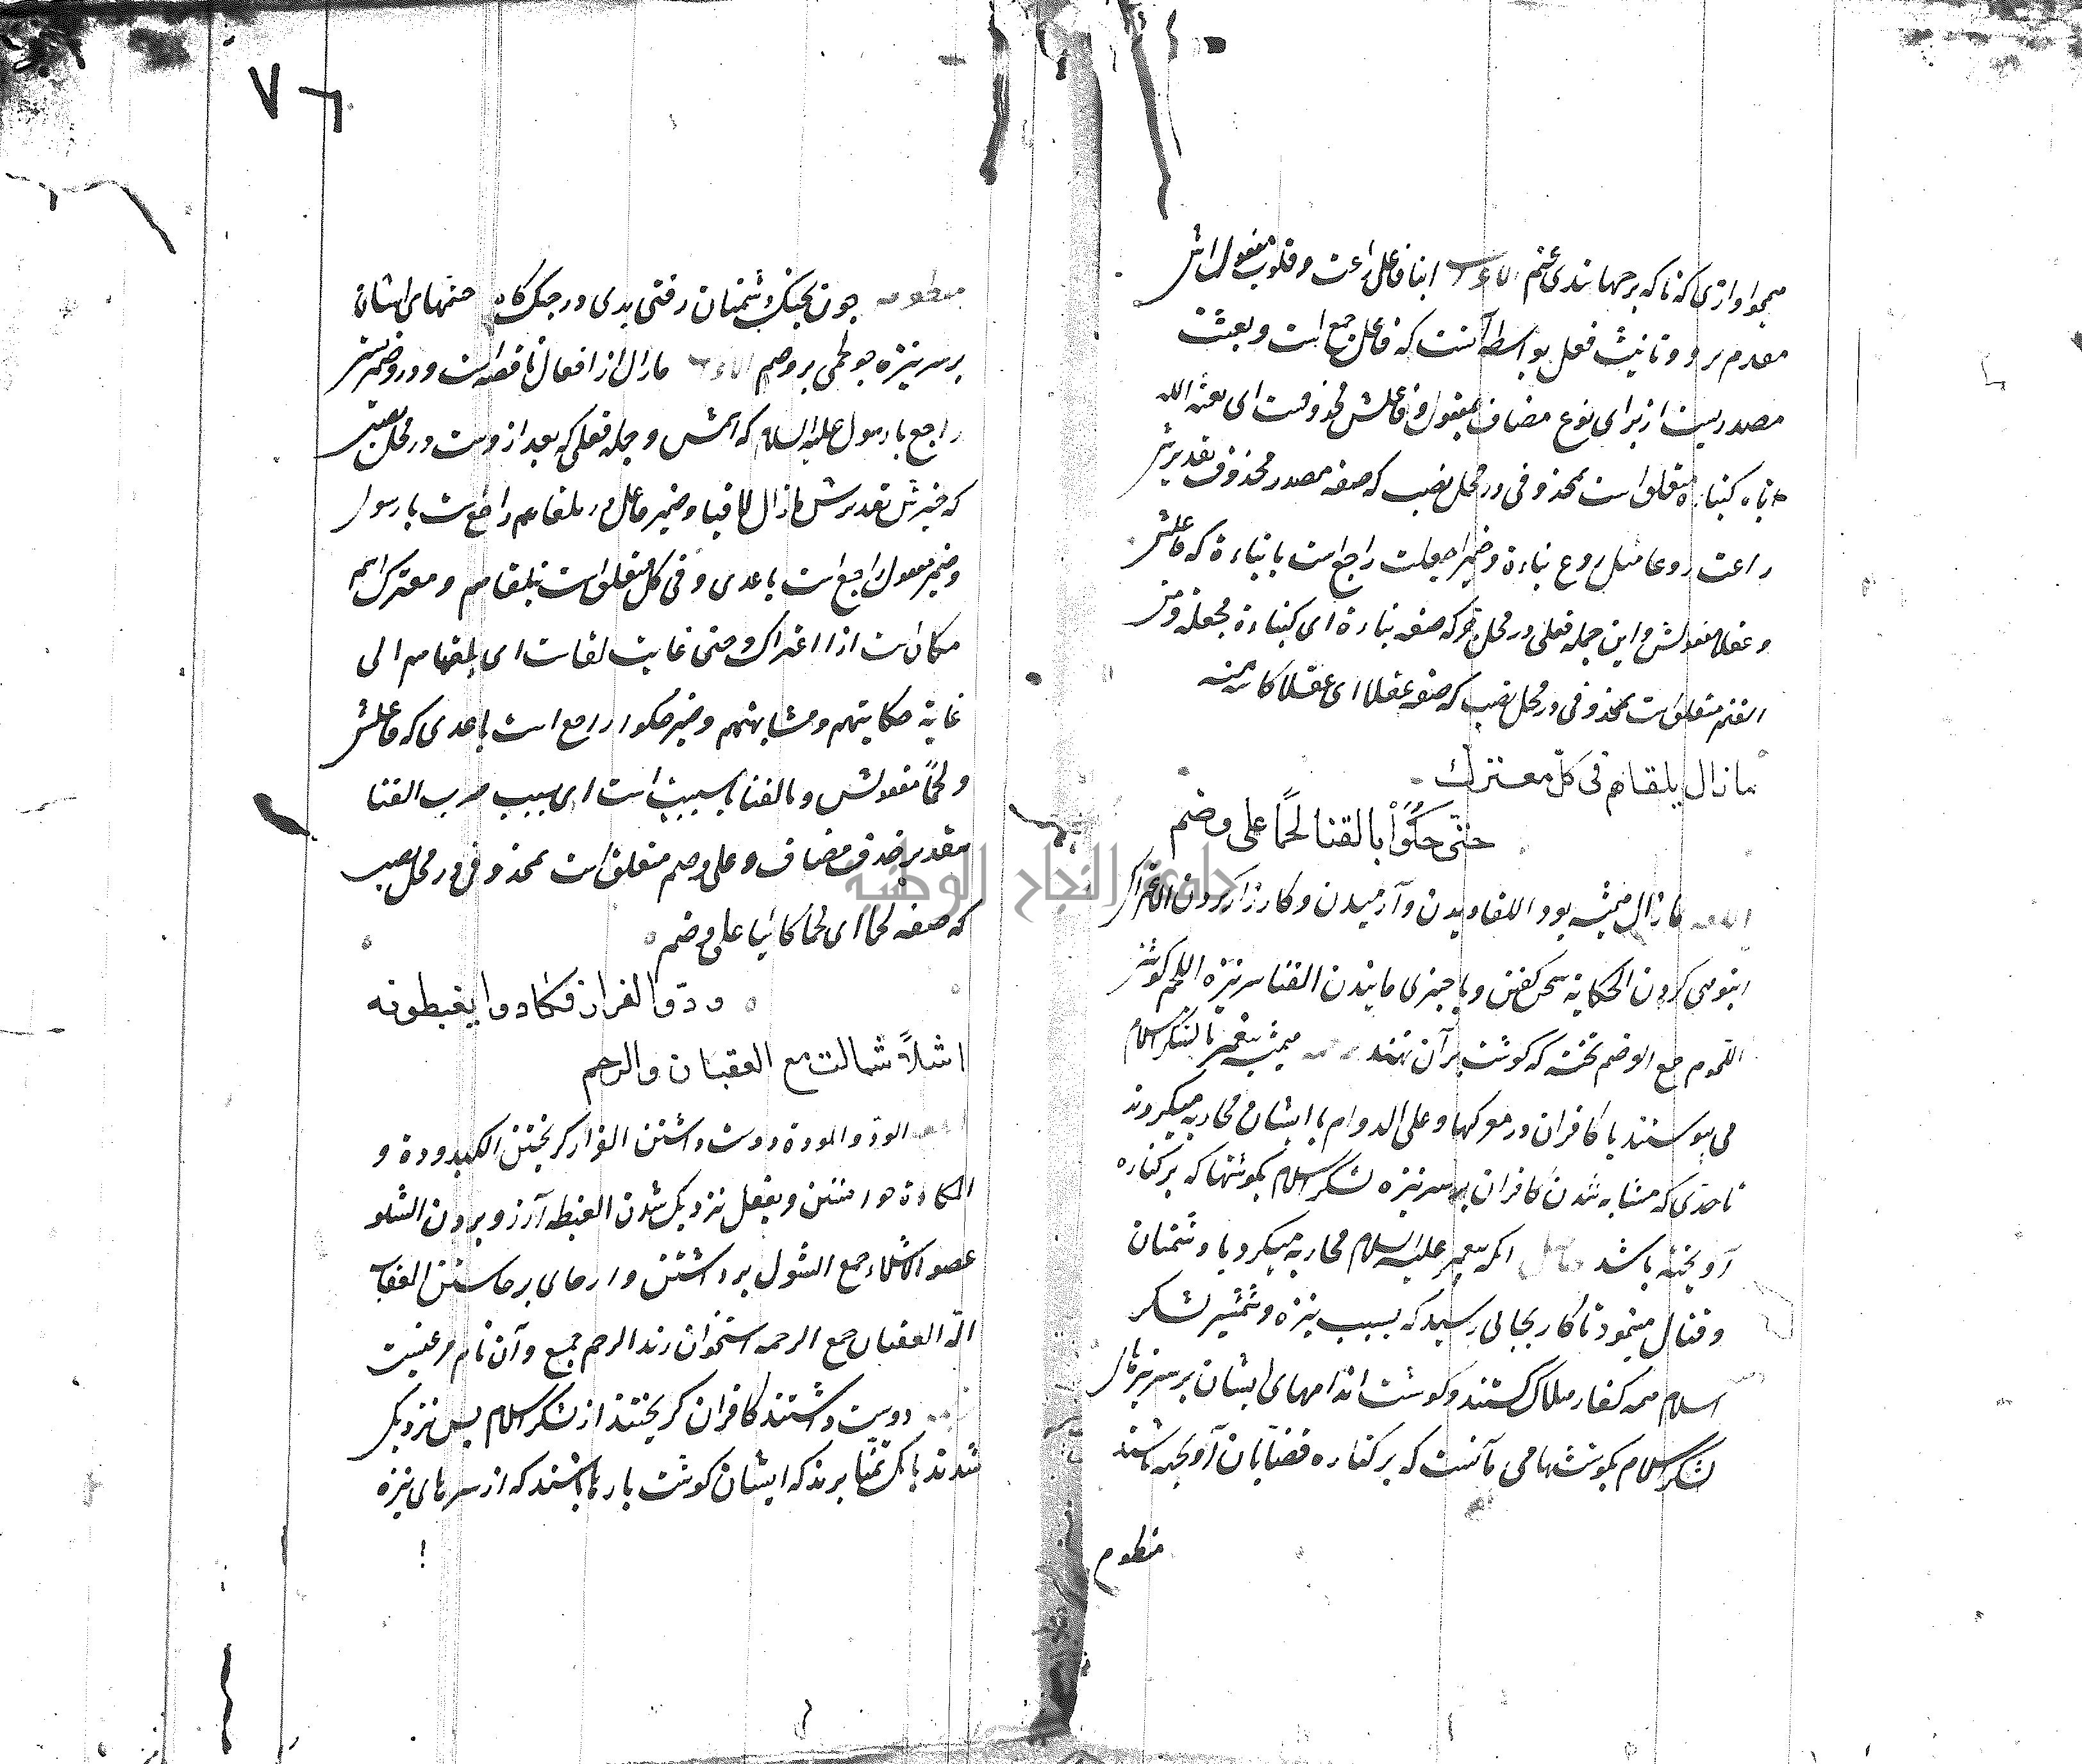 همچو اوازی که ناکه برجهاند بی غنم الاعراب انبا فاعل راعت و قلوب مفعول اش
مقدم برو و تانیث فعل بواسطه آنست که فاعل جمع است و بعثت
مصدریست از برای نوع مضاف بمفعول و فاعلش محذوفست ای بعثه الله
انباه کنباءة متعلق است بمحذوفی در محل نصب که صفه مصدر محذوف تقدیرش
راعت روعا مثل روع نباءة و ضمیر اجفلت راجع است با نباءة که فاعلش
و غفلا مفعولش و این جمله فعلی در محل جر که صفه نباءة ای کنباءة مجفلة و من
الغنم متعلق است بمحذوفی در محل نصب که صفه غفلا ای غفلا کائنة منه
ما زال یلقاهم فی کل معترك
حتی حکوا بالقنا لحمًا علی وضم
اللغه ما زال همیشه بود اللقا دیدن و آرمیدن و کارزار کردن الاعتراک
انبوهی کردن الحکایة سخن کفتن و با چیزی مانیدن القنا سر نیزه اللحم کوشت
اللحوم جمع الوضم تخته که کوشت بر آن نهند همیشه پیغمبر با لشکر اسلام
می پیوستند با کافران در معرکها و علی الدوام با ایشان محاربه میکردند
تا حدی که مشابه شدن کافران بر سر نیزه لشکر اسلام بکوشتها که بر کناره
آویخته باشد حاصل انکه پیغمبر علیه السلام محاربه میکرد با دشمنان
و قتال مینمود تا کار بجایی رسید که بسبب نیزه و شمشیر لشکر
اسلام همه کفار هلاک کشتند و کوشت اندامهای ایشان بر سر نیزهای
لشکر اسلام بکوشتها می مانست که بر کناره قصابان آویخته باشند
منظوم
٧٦
منظومه چون بجنک دشمنان رفتی بدی در جنک کاه جسمهای ایشان
بر سر نیزه چو لحمی بر وضم الاعراب مازال از افعال ناقصه است و درو ضمیر مستتر
راجع با رسول علیه السلام که اسمش و جمله فعلی که بعد ازوست در محل نصب
که خبرش تقدیرش مازال لاقیا و ضمیر فاعل در یلقاهم راجع است با رسول
و ضمیر مفعول راجع است با عدی و فی کل متعلق است بیلقاهم و معترک اسم
مکان است از اعتراک و حتی غایت لقاست ای یلقاهم الی
غایة حکایتهم و مشابهتهم و ضمیر حکوا راجع است با عدی که فاعلش
و لحمًا مفعولش و بالقنا با سببیت است ای بسبب ضرب القنا
بتقدیر حذف مضاف و علی وضم متعلق است بمحذوفی در محل نصب
که صفه لحما ای لحما کائنا علی وضم
ودّوا الفرار فکادوا یغبطون به
اشلاءً شالت مع العقبان والرخم
الودّ و المودة دوست داشتن الفرار کریختن الکیدودة و
المکادة خواستن و بفعل نزدیک شدن الغبطه آرزو بردن الشلو
عضو الاشلاء جمع الشول برداشتن و از جای برخاستن العقاب
الّه العقبان جمع الرخمه استخوان رند الرخم جمع و آن نام مرغیست
دوست داشتند کافران کریختند از لشکر اسلام پس نزدیک
شدند بانک تمنا برند که ایشان کوشت پارها باشند که از سرهای نیزه